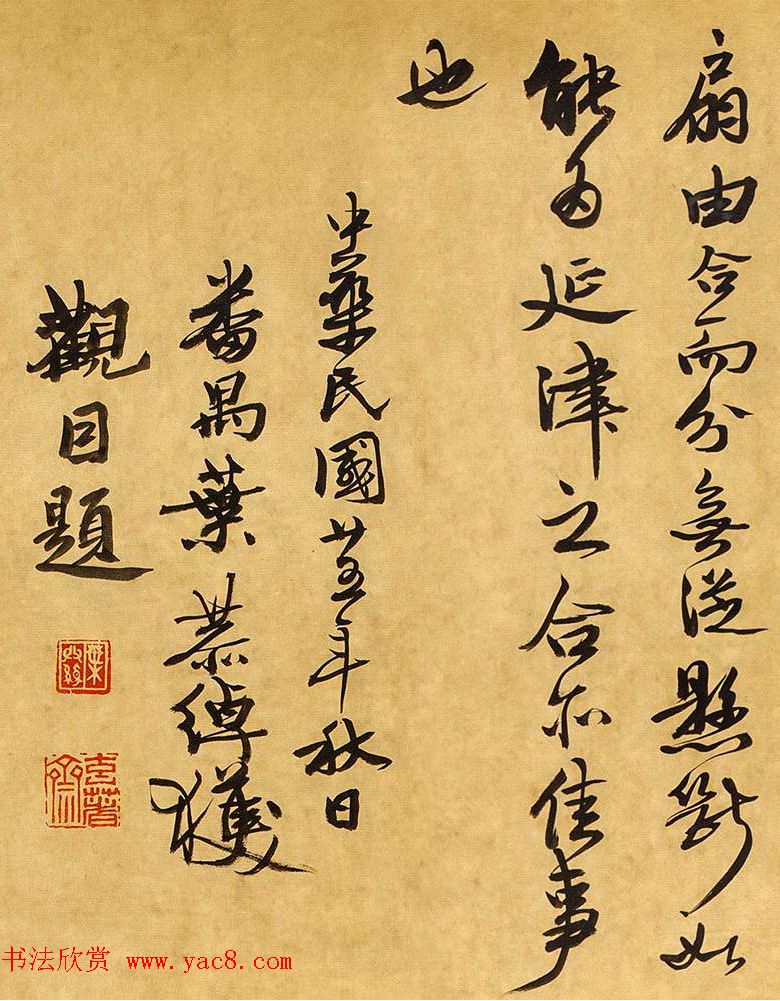 扇由合而分無從懸斷如
能為延津之合亦佳事
也
中華民國廿五年秋日
番禺葉恭綽獲
觀因題
书法欣赏 www.yac8.com